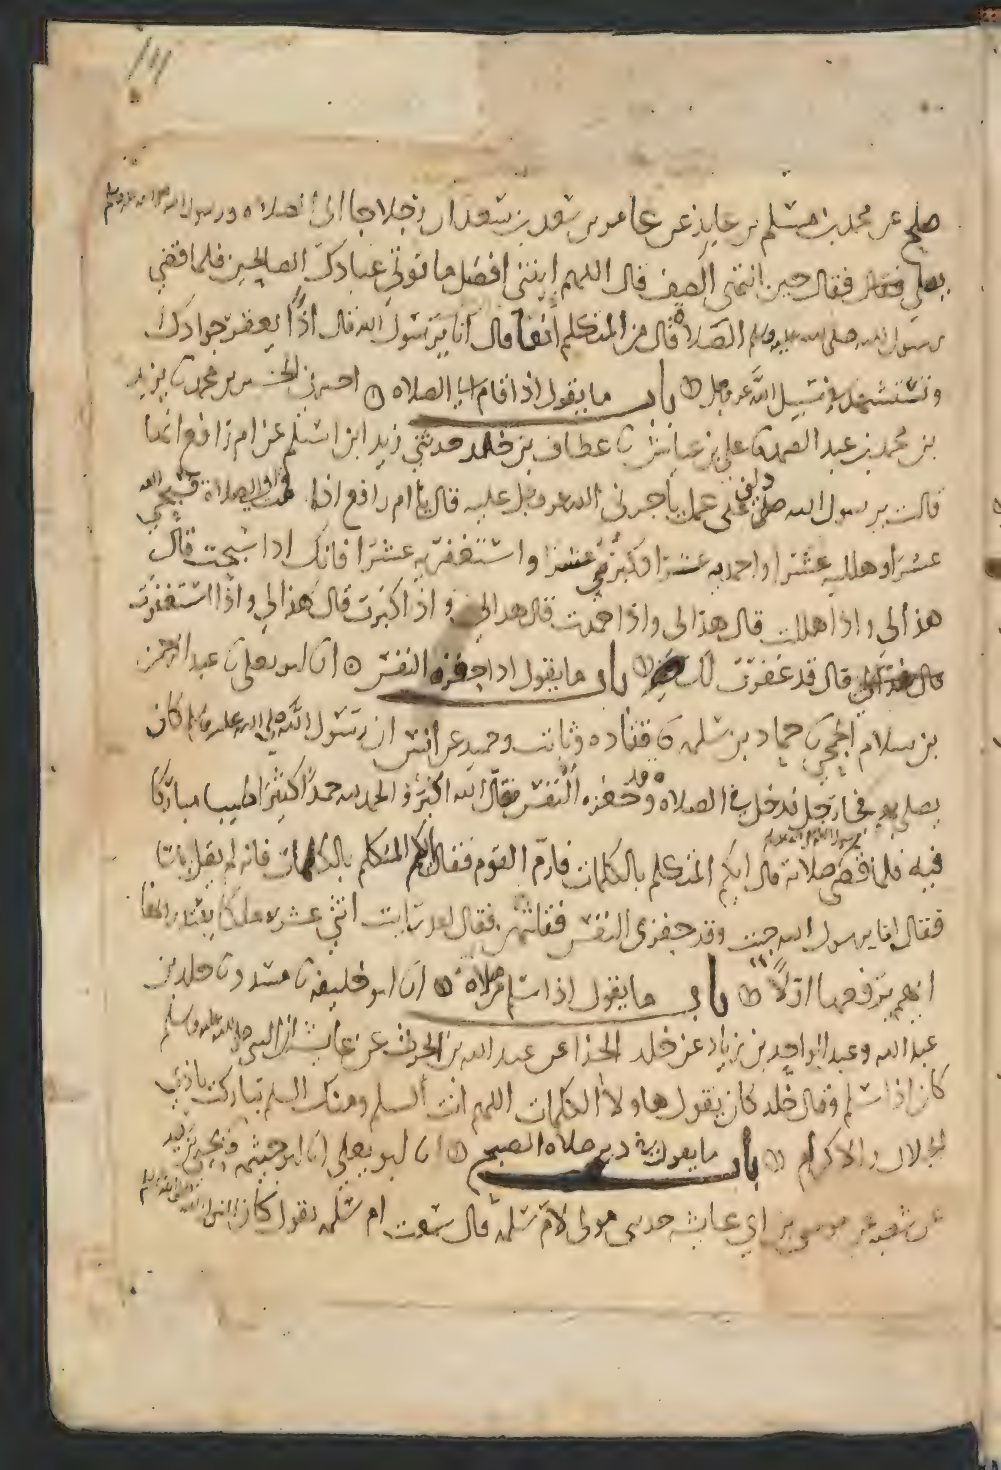 صلح عن محمد بن مسلم بن عايذ عن عامر بن سعد بن سعد ان رجلا جا الى الصلاه ورسول الله صلى الله عليه وسلم
يصلي فقال حين انتهى الى الصف قال اللهم ايتني افضل ما توتي عبادك الصالحين فلما قضى
رسول الله صلى الله عليه وسلم الصلاة قال من المتكلم آنفا قال انا يرسول الله قال اذًا يعقر جوادك
وتستشهد في سبيل الله عز وجل باب ما يقول اذا قام الى الصلاه اخبرني الحسين بن محمد ثنا يزيد
بن محمد بن عبد الصمد ثنا علي بن عياش ثنا عطاف بن خالد حدثني زيد ابن اسلم عن ام رافع انها
قالت يرسول الله دلني على عمل يأجرني الله عز وجل عليه قال يا ام رافع اذا قمت الى الصلاة فسبحي الله
عشرًا وهلليه عشرا واحمديه عشرا وكبريه عشرا واستغفريه عشرا فانك اذا سبحت قال
هذا لي واذا هللت قال هذا لي واذا حمدت قال هذا لي واذا كبرت قال هذا لي واذا استغفرت
قال قد غفرت لك باب ما يقول اذا حفزه النفس انا ابو يعلى ثنا عبد الرحمن
بن سلام الجمحي ثنا حماد بن سلمه ثنا قتاده وثابت وحميد عن انس ان رسول الله صلى الله عليه وسلم كان
يصلي بهم فجا رجل فدخل في الصلاه وقد حفزه النفس فقال الله اكبر والحمد لله حمدًا كثيرًا طيبا مباركا
فيه فلما قضى رسول الله صلاته قال ايكم المتكلم بالكلمات فارم القوم فقال ايكم المتكلم بالكلمات فانه لم يقل باسا
فقال انا يرسول الله جيت وقد حفزني النفس فقلتهن فقال لقد رايت اثني عشر ملكا يبتدرونها
ايهم يرفعها اولًا باب ما يقول اذا سلم من صلاه انا ابو خليفه ثنا مسدد ثنا خلد بن
عبد الله وعبد الواحد بن زياد عن خلد الحذا عن عبد الله بن الحرث عن عايشه ان النبي صلى الله عليه وسلم
كان اذا سلم وقال خلد كان يقول هاولا الكلمات اللهم انت السلم ومنك السلم تباركت يا ذي
الجلال والاكرام باب ما يقول في دبر صلاه الصبح انا ابو يعلى انا ابو خيثمه ثنا يحيى بن سعيد
عن شعبه عن موسى بن ابي عايشه حدثني مولى لام سلمه قال سمعت ام سلمه تقول كان رسول الله صلى الله عليه وسلم